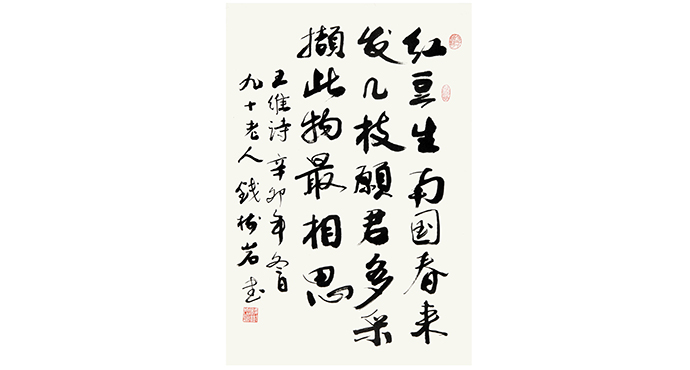 红豆生南国春来
发几枝願君多采
擷此物最相思
王維诗辛卯年冬日
九十老人錢树岩書